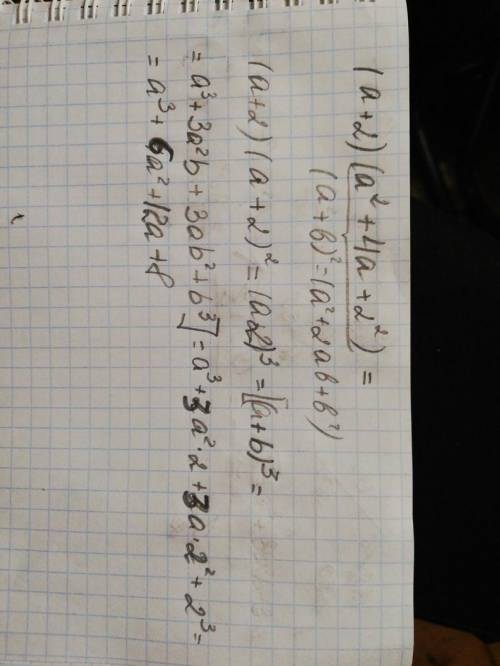 (a+2)(a²+4a+2²)=
(a+b)²=(a²+2ab+b²)
(a+2)(a+2)²=(a2)³=[(a+b)³=
=a³+3a²b+3ab²+b³]=a³+3a²·2+3a·2²+2³=
=a³+6a²+12a+8